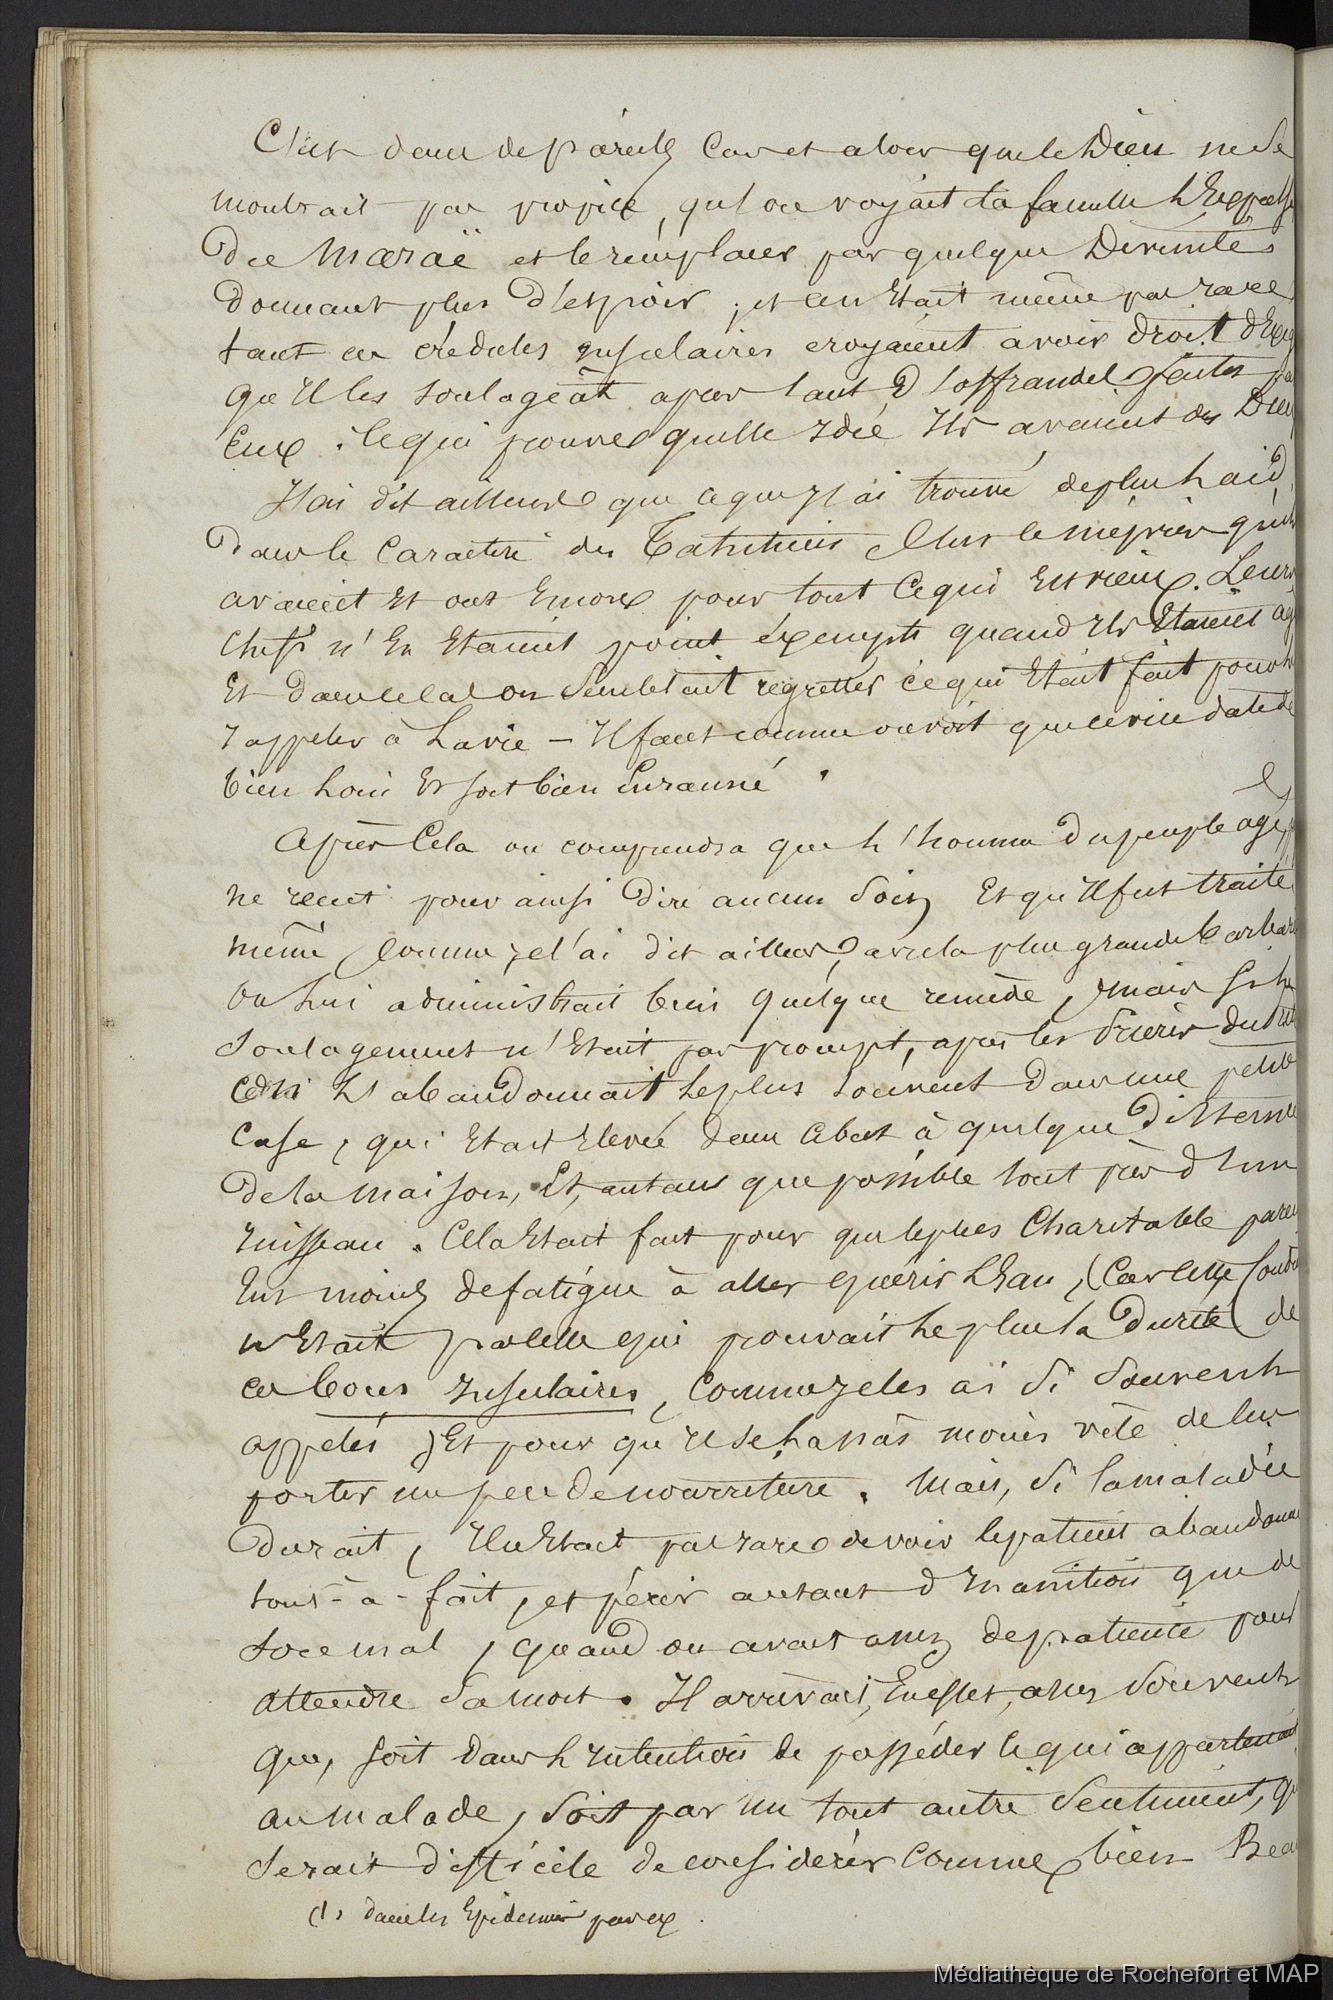 C'est dans de pareils Cas et alors que le Dieu ne se
montrait pas propice, qu'on voyait la famille l'Expulser
du Maraë et le remplacer par quelque Divinité
donnant plus d'espoir ; et cen Etait même pas rare
tant ces crédules insulaires croyaient avoir droit
qu'Il les soulageât après tant d'offrandes faites
Eux : ce qui prouve quelle Idée Ils avaient des Dieux
J'ai dit ailleurs que ce que J'ai trouvé de plus laid
dans le Caractère des Tahitiens C'est le mépris qu'ils
avaient Et ont Encore pour tout Ce qui Est vieux. Leurs
Chefs n'En Etaient point éxempts quand Ils Etaient
Et dans Cela on Semblait regretter ce qui Etait fait pour les
rappeler à La vie – Il faut comme on voit que ce vice date de
bien loin Et soit bien Enraciné .
Après Cela on comprendra que l'homme du peuple agé
ne reçut pour ainsi dire aucun Soin Et qu'Il fut traité
même, Comme je l'ai dit ailleurs, avec la plus grande barbarie
On lui administrait bien quelque remède, mais Si le
Soulagement n'Etait pas prompt, après les Prières du
on l'abandonnait le plus souvent dans une petite
Case, qui Etait Elevée dans ce but à quelque distance
de la maison, Et, autant que possible tout près d'un
ruisseau. Cela Etait fait pour que le plus Charitable parent
Eut moins de fatigue à aller quérir l'Eau, (Car Cette
n'Etait pas Celle qui prouvait le plus la dureté de
ces bons Insulaires, Comme Je les ai Si Souvent
appelés) Et pour qu'Il se lassât moins vite de lui
porter un peu de nourriture. Mais, Si la maladie
durait, Il n'Etait pas rare de voir le patient abandonné
tout-à-fait, et périr autant d'Inanition que de
son mal, quand on avait assez de patience pour
attendre Sa mort. Il arrivait, En effet, assez Souvent
que, soit dans l'Intention de posséder ce qui appartenait
au malade, Soit par un tout autre Sentiment, qu'il
Serait difficile de considérer Comme bien Beau
(1) dans les Epidémies par ex.
Médiathèque de Rochefort et MAP